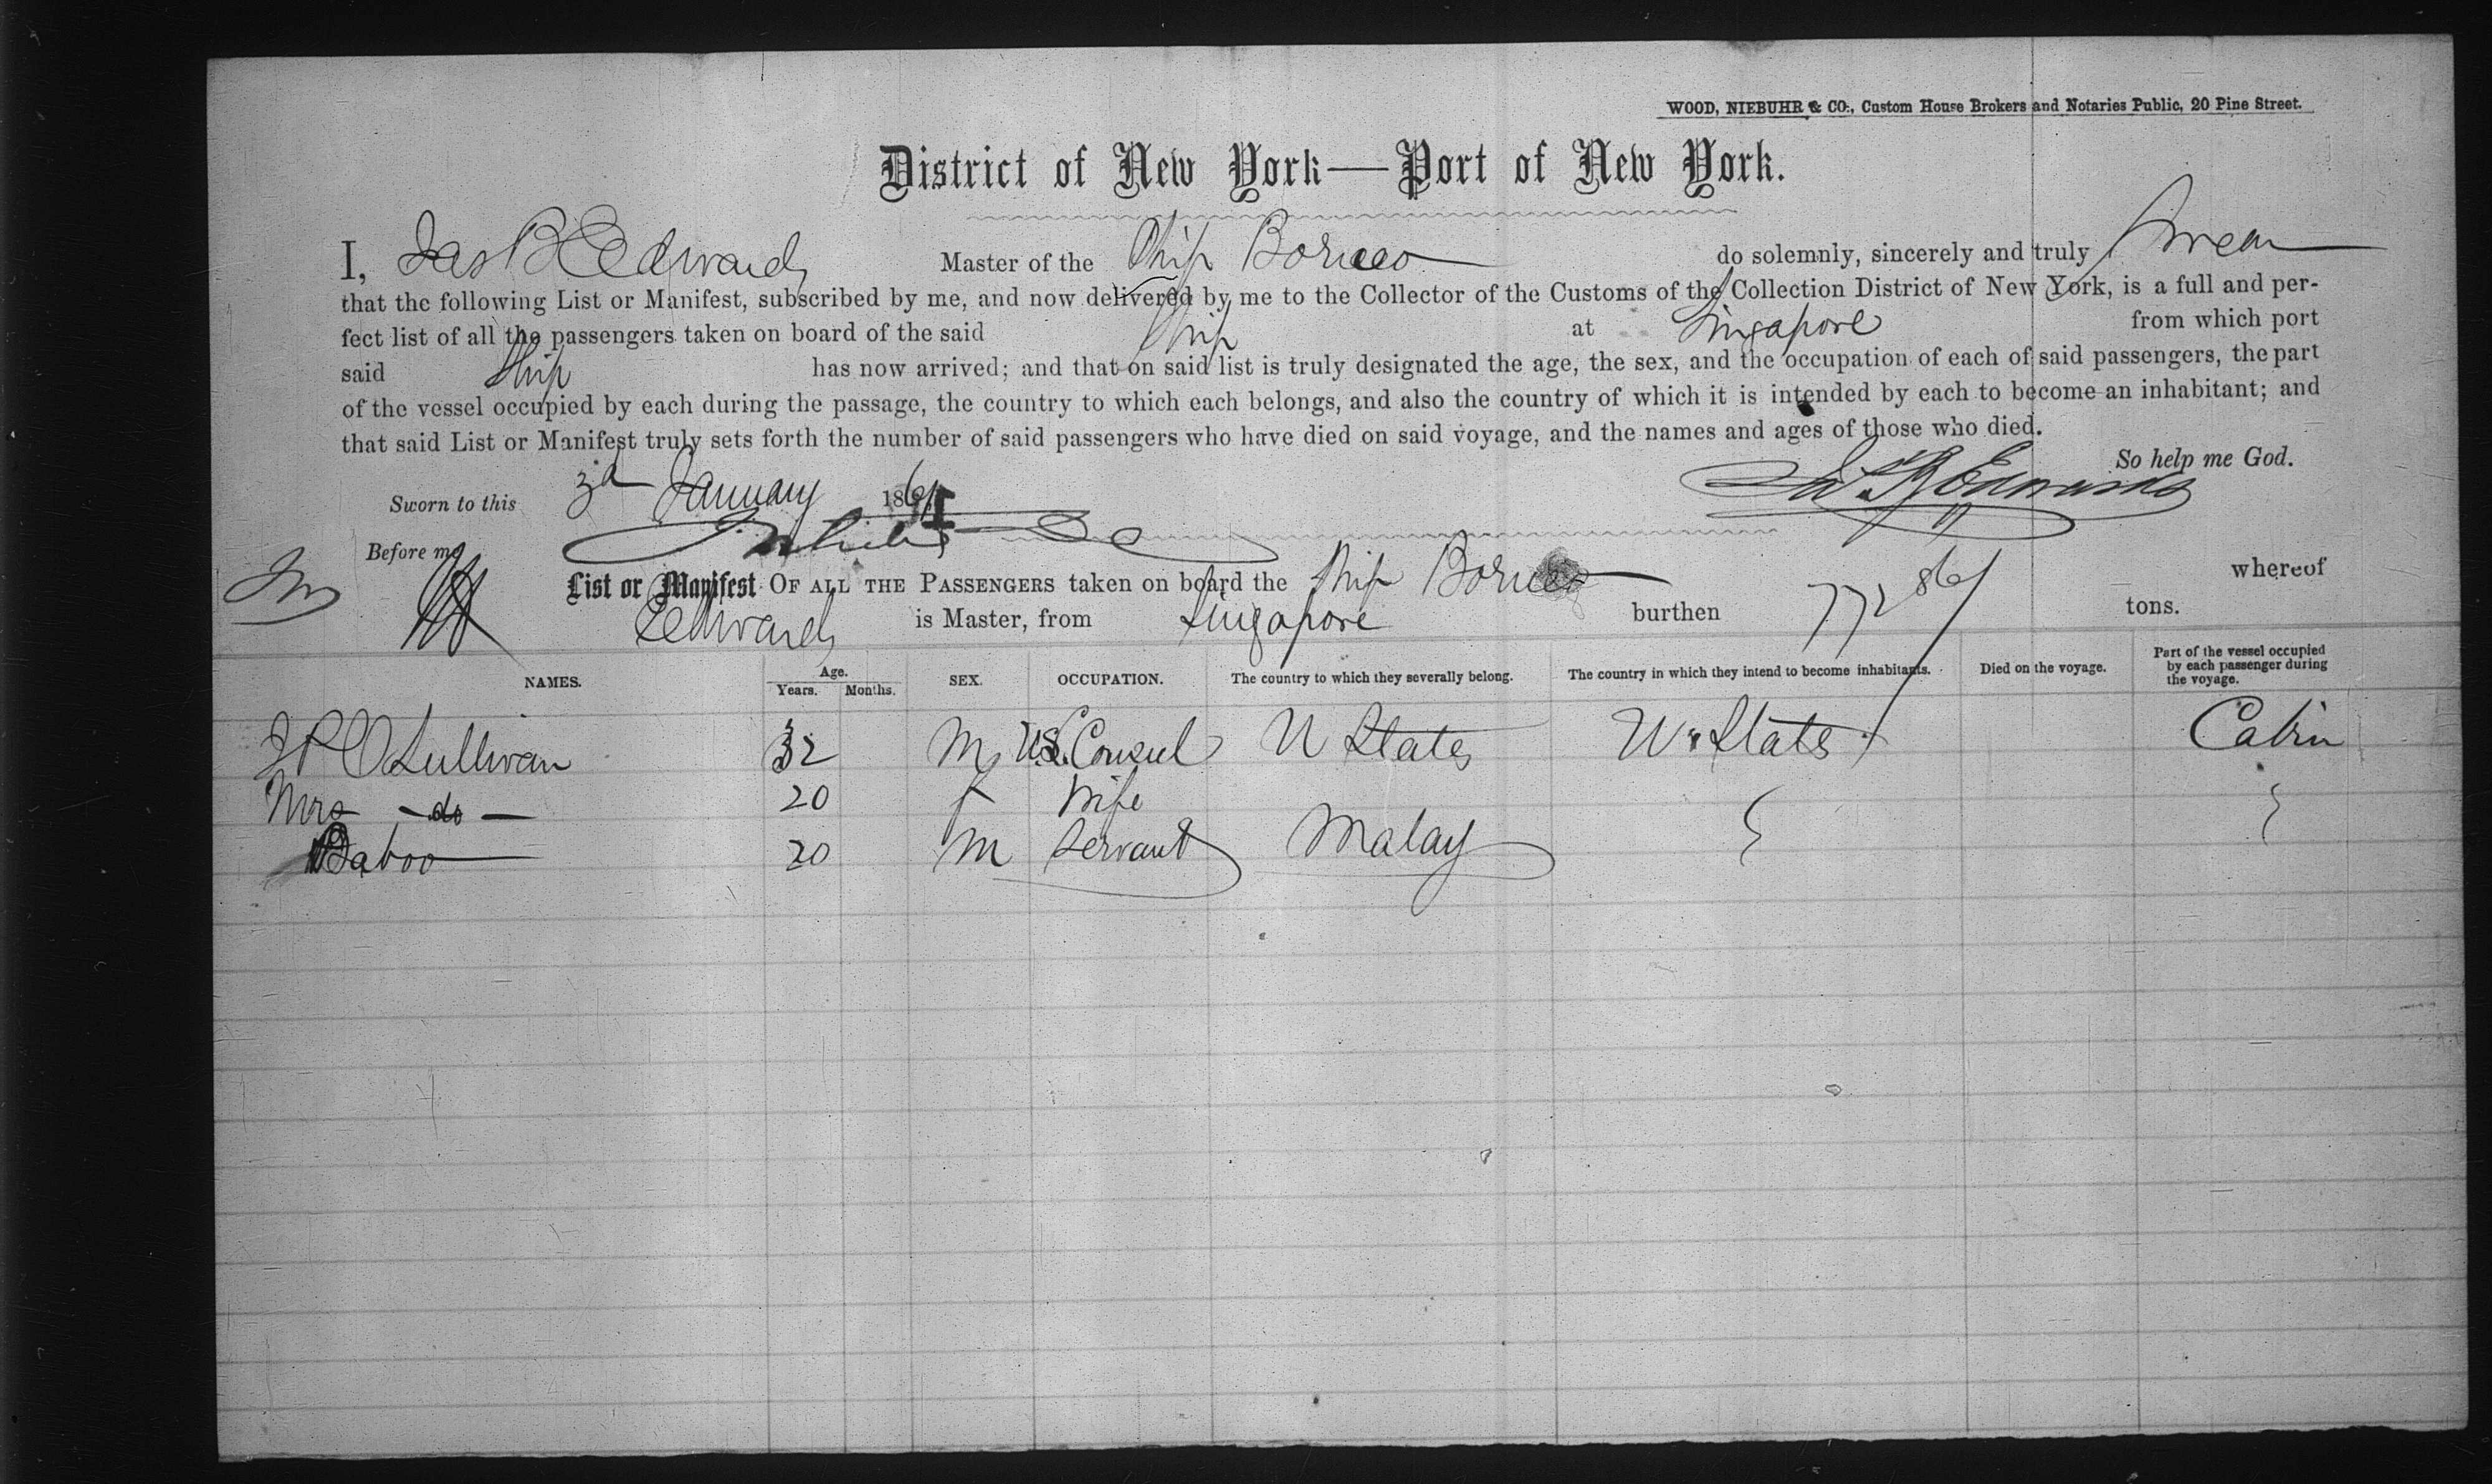 WOOD, NIEBUHR & CO., Custom House Brokers and Notaries Public, 20 Pine Street.
District of New York—Port of New York.
I, Jas B Edwards Master of the Ship Borneo do solemnly, sincerely and truly Swear
that the following List or Manifest, subscribed by me, and now delivered by me to the Collector of the Customs of the Collection District of New York, is a full and per-
fect list of all the passengers taken on board of the said Ship at Singapore from which port
said Ship has now arrived; and that on said list is truly designated the age, the sex, and the occupation of each of said passengers, the part
of the vessel occupied by each during the passage, the country to which each belongs, and also the country of which it is intended by each to become an inhabitant; and
that said List or Manifest truly sets forth the number of said passengers who have died on said voyage, and the names and ages of those who died.
So help me God.
Sworn to this 3d January 1861 Jas B Edwards
Before me
List or Manifest OF ALL THE PASSENGERS taken on board the Ship Borneo whereof
Edwards is Master, from Singapore burthen 772 86/ tons.
NAMES. Age. Years. Months. SEX. OCCUPATION. The country to which they severally belong. The country in which they intend to become inhabitants. Died on the voyage. Part of the vessel occupied by each passenger during the voyage.
J P O Sullivan 32 M U.S. Consul U States U. States Cabin
Mrs - do - 20 f Wife
Baboo 20 M Servant Malay